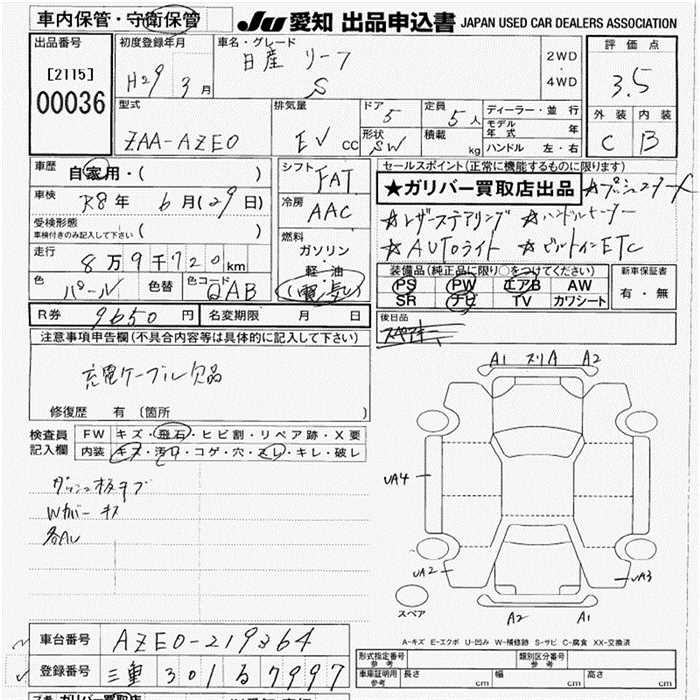 車内保管・守衛保管
JU 愛知 出品申込書 JAPAN USED CAR DEALERS ASSOCIATION
出品番号
[2115]
00036
初度登録年月
H29 3月
車名・グレード
日産 リーフ
S
2WD
・
4WD
評価点
3.5
外装 内装
C B
型式
ZAA-AZE0
排気量
EV cc
ドア
5
形状
SW
定員
5人
積載
kg
ディーラー・並行
モデル年式 年
ハンドル 左・右
車歴
自家用・( )
車検
R8年 6月(29日)
受検形態
車検付きのみ記入して下さい ( )
走行
8万9千720km
色
パール
色替
色コード
QAB
シフト
FAT
冷房
AAC
燃料
ガソリン
軽・油
(電・気)
セールスポイント(正常に機能するものに限ります)
★ガリバー買取店出品 ☆プッシュスタート
☆レザーステアリング ☆ハンドルヒーター
☆AUTOライト ☆ビルトインETC
装備品(純正品に限り○をつけてください)
PS PW エアB AW
SR ナビ TV カワシート
新車保証書
有・無
R券 9650円
名変期限 月 日
後日品
スペアキー
注意事項申告欄(不具合内容等は具体的に記入して下さい)
充電ケーブル欠品
修復歴 有〔箇所 〕
検査員記入欄
FW キズ・飛石・ヒビ割・リペア跡・X要
内装 キズ・汚れ・コゲ・穴・スレ・キレ・破レ
Wカバーキズ
A1 スリA A2
UA4
UA2
UA3
スペア
A2 A1
A-キズ E-エクボ U-凹み W-補修跡 S-サビ C-腐食 XX-交換済
車台番号 AZE0-219364
登録番号 三重 301 る 7997
形式指定番号
参考
類別区分番号
参考
車庫証明用
参考
長さ cm
幅 cm
高さ cm